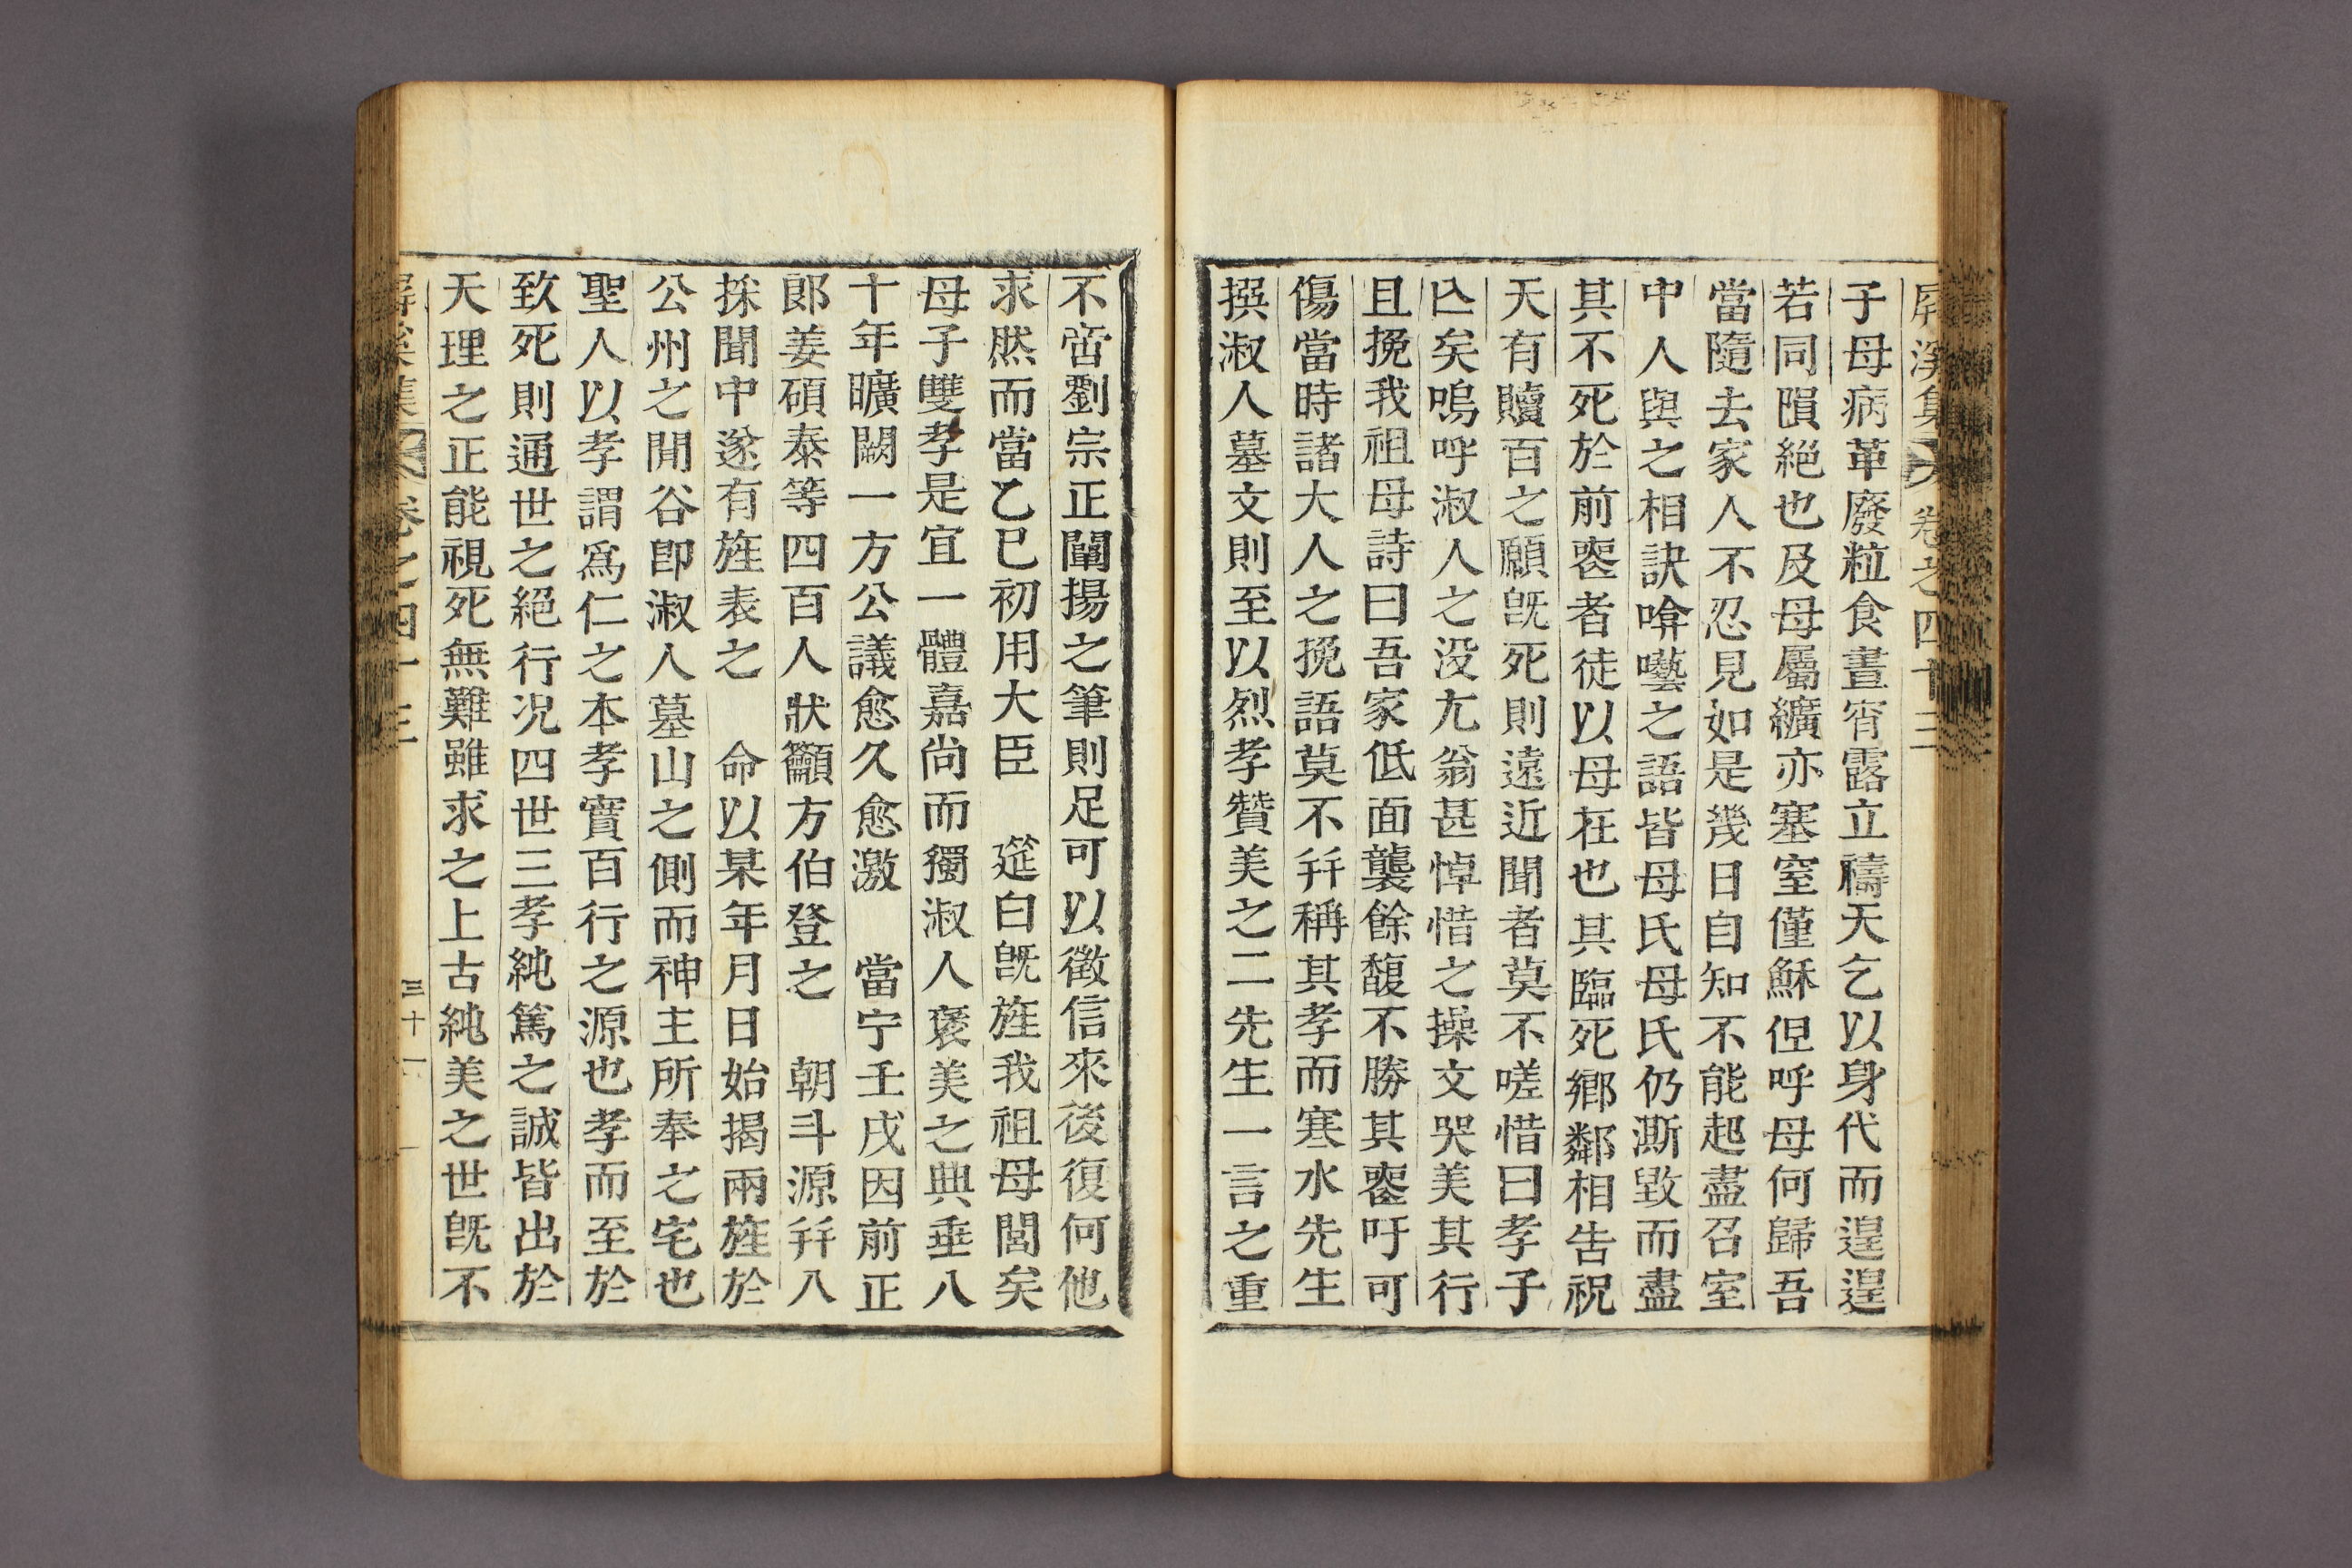 屛溪集 卷之四十三
子母病革廢粒食晝宵露立禱天乞以身代而遑遑
若同隕絕也及母屬纊亦塞窒僅穌但呼母何歸吾
當隨去家人不忍見如是幾日自知不能起盡召室
中人與之相訣唅囈之語皆母氏母氏仍澌毁而盡
其不死於前喪者徒以母在也其臨死鄕鄰相告祝
天有贖百之願旣死則遠近聞者莫不嗟惜曰孝子
亾矣嗚呼淑人之没尢翁甚悼惜之操文哭美其行
且挽我祖母詩曰吾家低面襲餘馥不勝其喪吁可
傷當時諸大人之挽語莫不幷稱其孝而寒水先生
撰淑人墓文則至以烈孝贊美之二先生一言之重
不啻劉宗正闡揚之筆則足可以徵信來後復何他
求然而當乙巳初用大臣 筵白旣旌我祖母閭矣
母子雙孝是宜一體嘉尙而獨淑人褒美之典垂八
十年曠闕一方公議愈久愈激 當宁壬戌因前正
郞姜碩泰等四百人狀籲方伯登之 朝斗源幷八
採聞中遂有旌表之 命以某年月日始揭兩旌於
公州之閒谷卽淑人墓山之側而神主所奉之宅也
聖人以孝謂爲仁之本孝實百行之源也孝而至於
致死則通世之絕行况四世三孝純篤之誠皆出於
天理之正能視死無難雖求之上古純美之世旣不
屛溪集 卷之四十三 三十一